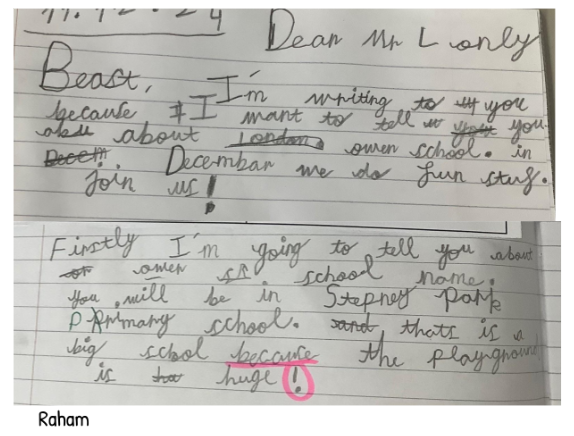 11.12.24
Dear Mr L only
Beast, I'm writing to you
because I want to tell you
about London owen school. in
Decem Decembar we do fun stuf.
Join us!
Firstly I'm going to tell you about
owen school name.
You will be in Stepney Park
Primary school. and thats is a
big school because the playground
is huge!
Raham